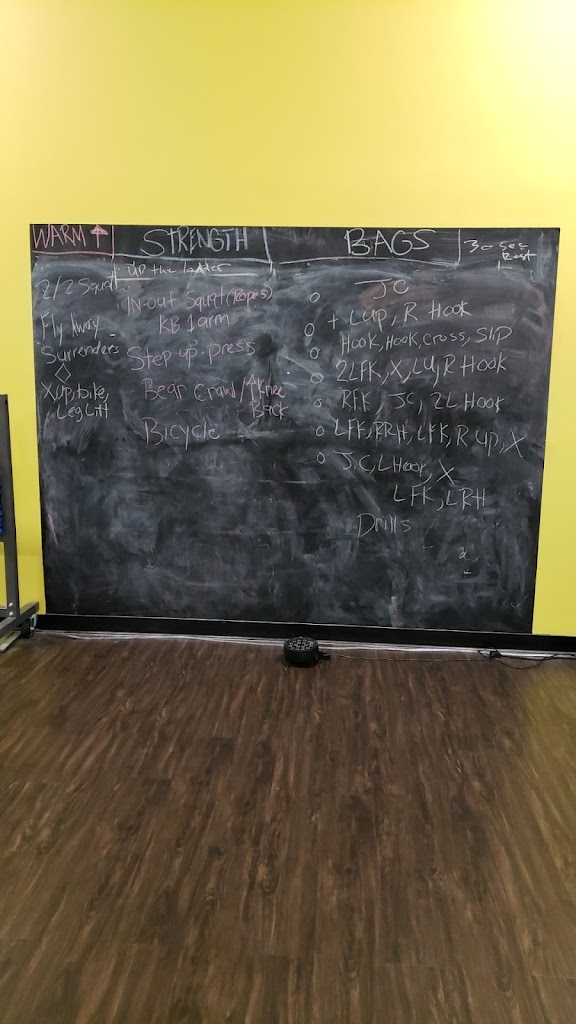 WARM ↑
2/2 Squat
Fly Away
Surrenders
◇
X Up, bike,
Leg Lift
STRENGTH
UP the ladder
IN-out Squat (Ropes)
KB 1 arm
Step up press
Bear Crawl / ↑ Knee
Back
Bicycle
BAGS
30 Sec
Rest
JC
+ L up, R Hook
Hook, Hook, Cross, Slip
2LFK, X, LU, R Hook
RFK JC, 2L Hook
LFK, RRH, LFK, R UP, X
J.C, L Hook, X
LFK, LRH
Drills